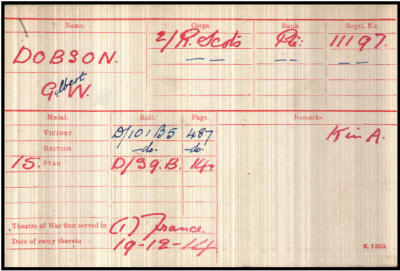 Name. Corps. Rank. Regtl. No.
DOBSON. 2/R. Scots Pte: 11197.
G. W. Gilbert — — — — — —
Medal. Roll. Page. Remarks.
VICTORY D/101B5 487 K in A.
BRITISH -do- do
15. STAR D/39.B. 14.
Theatre of War first served in (1) France
Date of entry thereto 19-12-14
K. 1380.